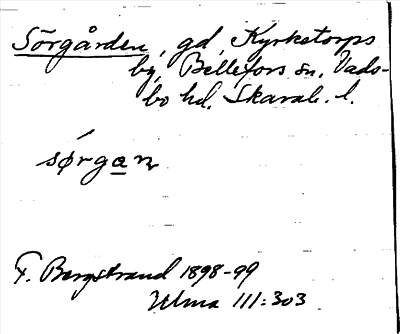 Sörgården, gd, Kyrketorps
by, Bellefors sn, Vads-
bo hd. Skarab. l.
sørgan
F. Bergstrand 1898-99
Ulma 111:303